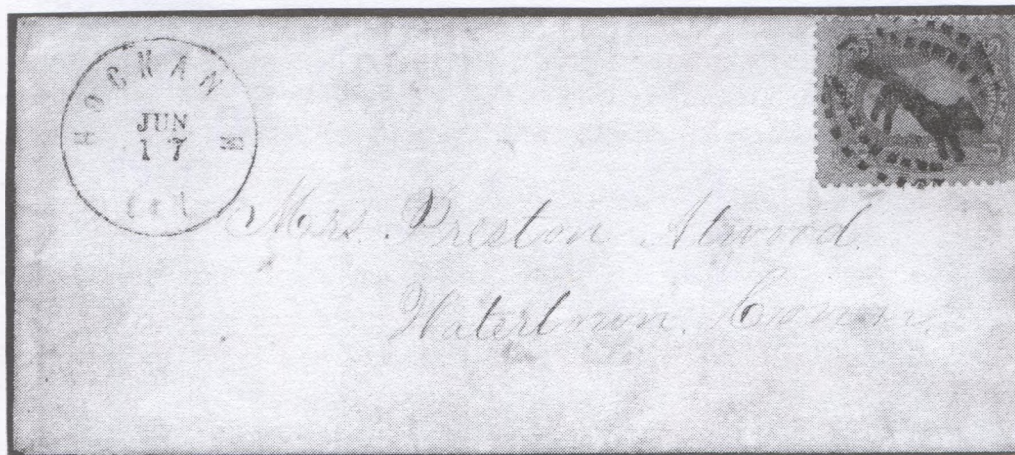 HOCKANUM
JUN
17
CON
Mrs. Preston Atwood.
Watertown. Conn.